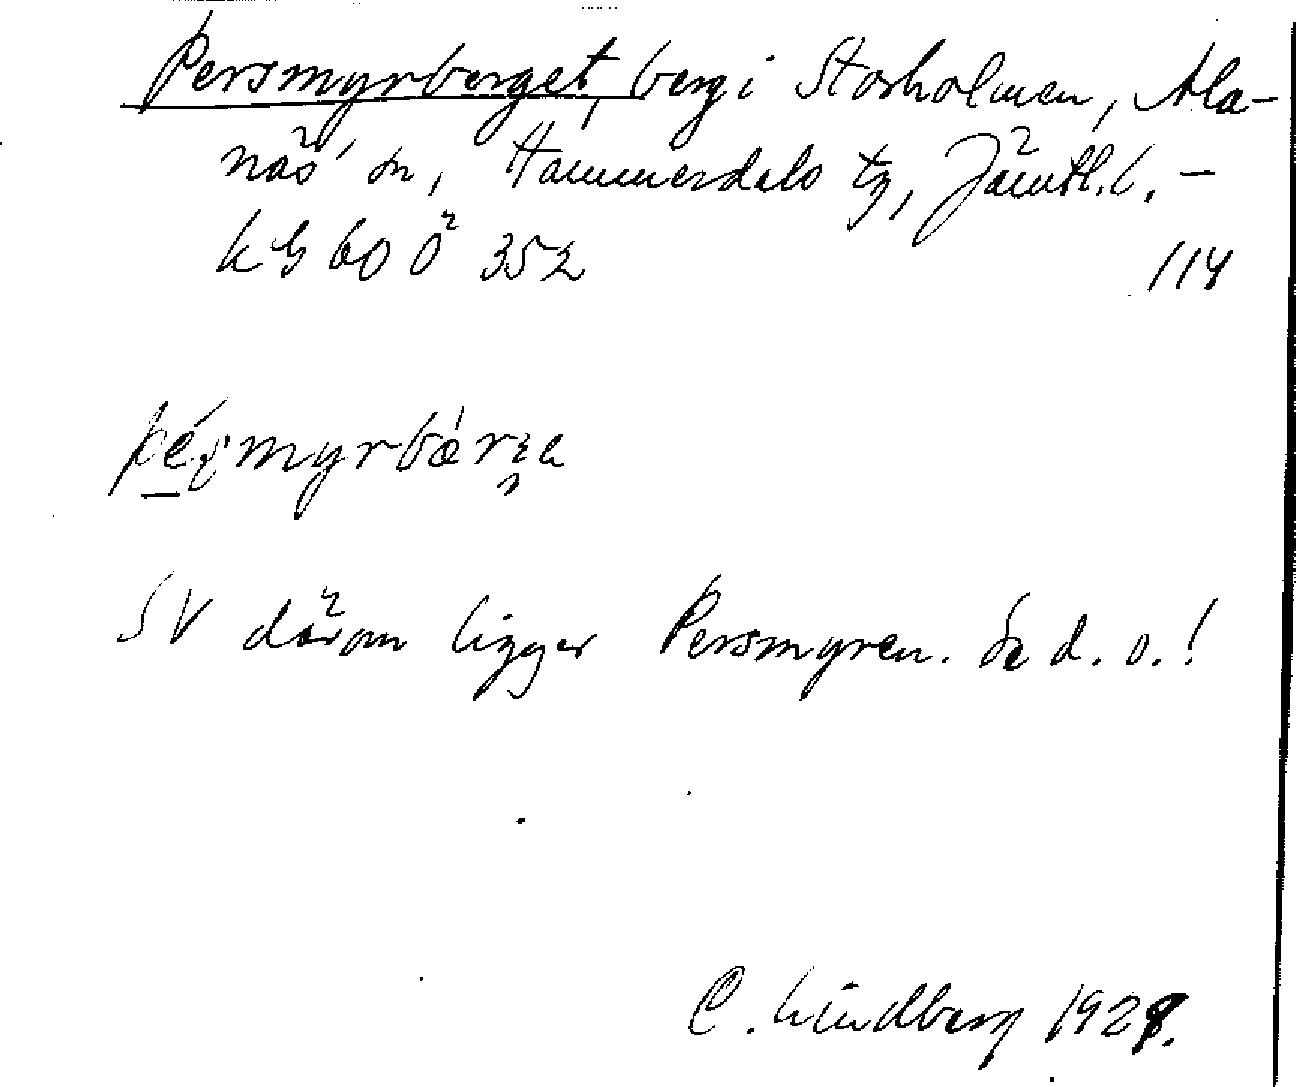 Persmyrberget, berg i Storholmen, Ala-
näs' sn, Hammerdals tg, Jämtl. l. –
k G 60 Ö 352 114
SV därom ligger Persmyren. Se d. o.!
C. Lindberg 1928.